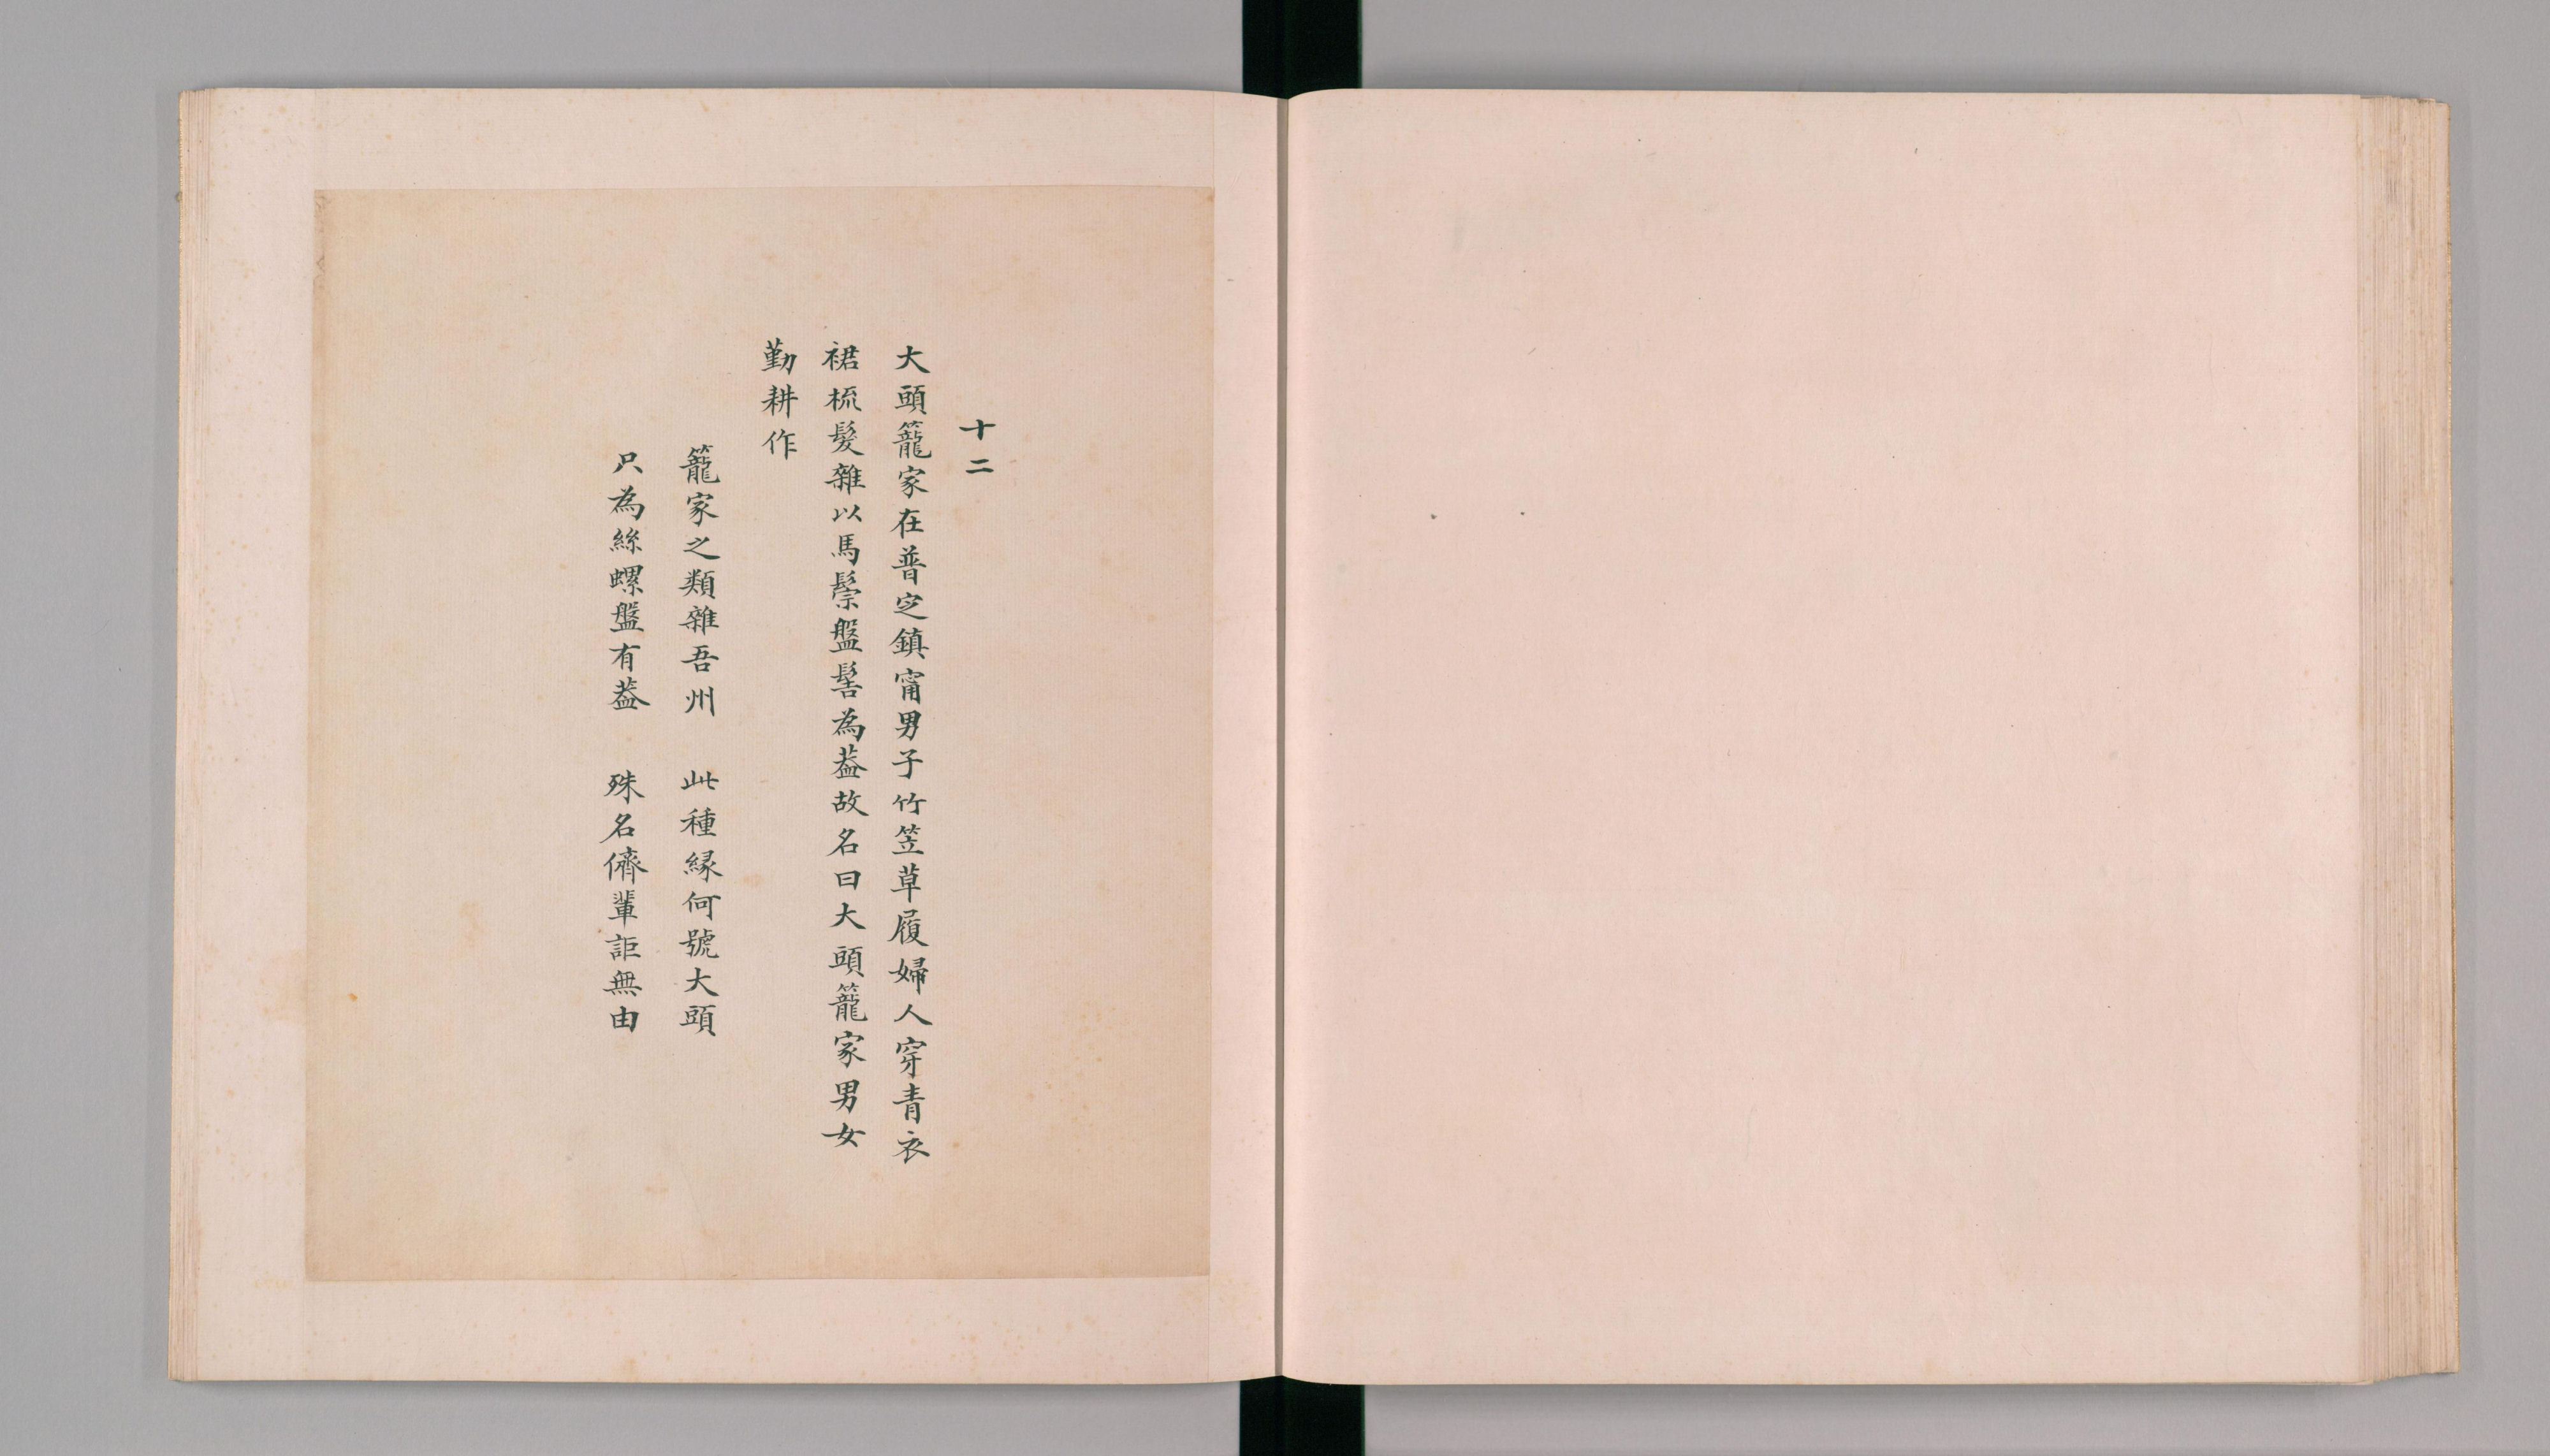 十二
大頭籠家在普定鎮甯男子竹笠草履婦人穿青衣
裙梳髮雜以馬鬃盤髻為葢故名曰大頭籠家男女
勤耕作
籠家之類雜吾州 此種緣何號大頭
只為絲螺盤有葢 殊名儕輩詎無由